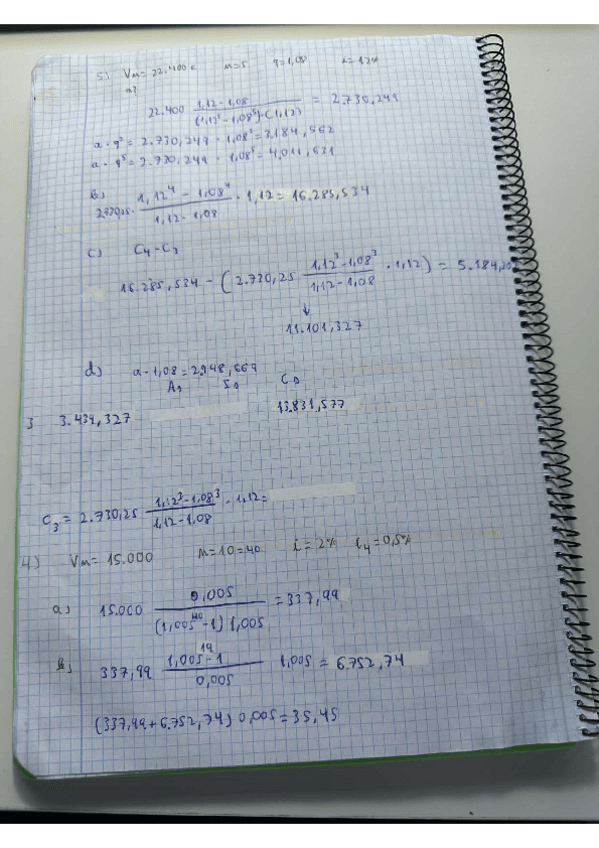 5) Vm= 22.400 € m=5 q=1,08 i=12%
a)
22.400 1,12-1,08 / (1,12⁵-1,08⁵)·(1,12) = 2.730,249
a·q² = 2.730,249 · 1,08² = 3.184,562
a·q⁵ = 2.730,249 · 1,08⁵ = 4,011,631
b)
2.730,25 · 1,12⁴ - 1,08⁴ / 1,12 - 1,08 · 1,12 = 16.285,534
c) C₄-C₃
16.285,534 - (2.730,25 1,12³-1,08³ / 1,12-1,08 · 1,12) = 5.184,20
↓
11.101,327
d) a·1,08=2.948,669
A₃ I₃ C₃
3 3.439,327 13.831,577
C₃ = 2.730,25 1,12³-1,08³ / 1,12-1,08 · 1,12=
4) Vm= 15.000 m=10=40. i=2% i₄=0,5%
a) 15.000 0,005 / (1,005⁴⁰-1) 1,005 = 337,99
b) 337,99 1,005¹⁹-1 / 0,005 1,005 = 6.752,74
(337,99+6.752,74) 0,005=35,45